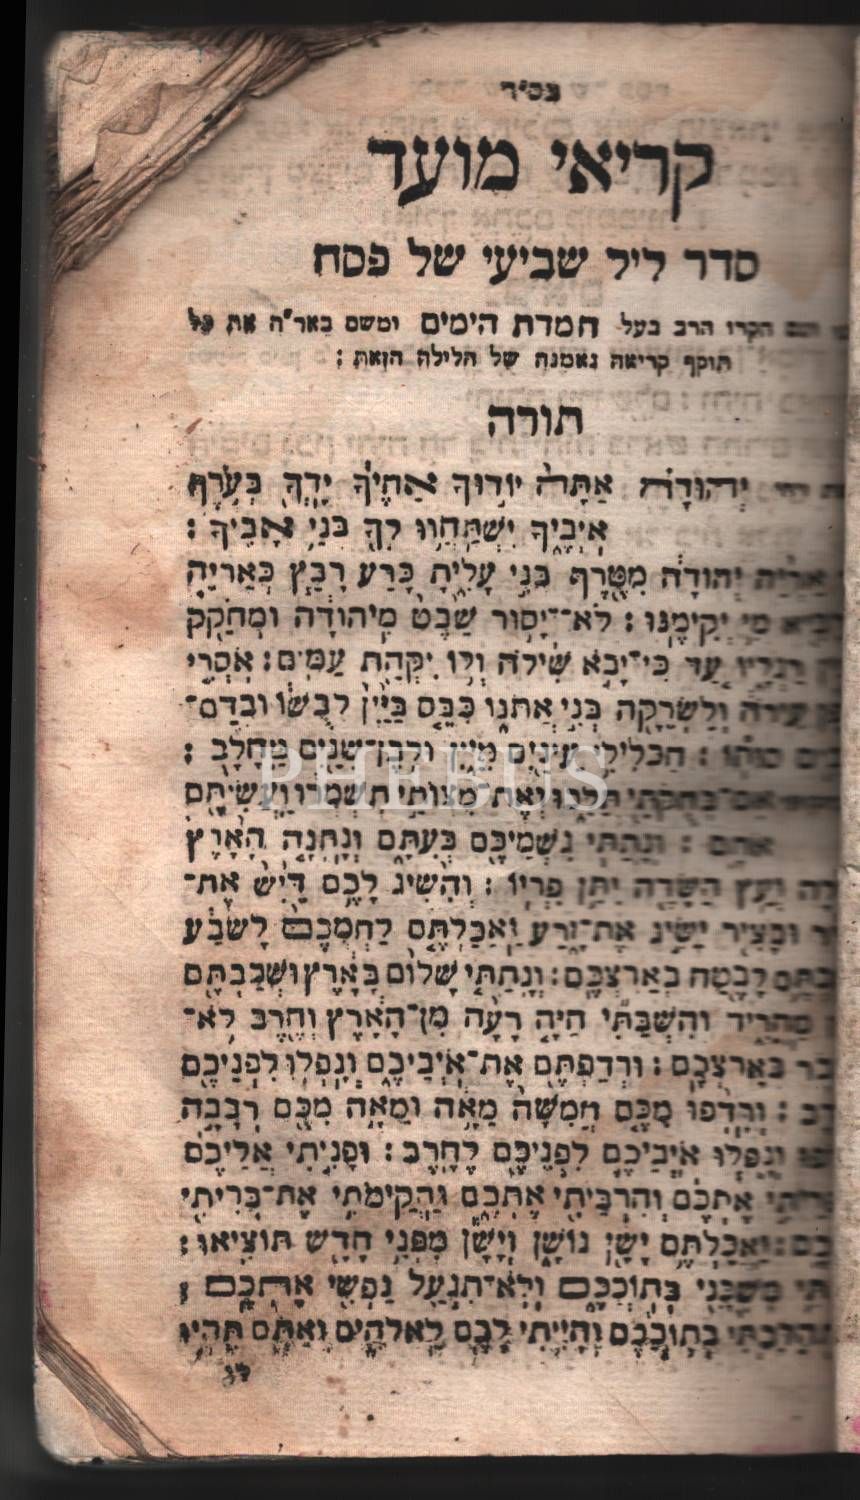 בס"ד
קריאי מועד
סדר ליל שביעי של פסח
הקרו הרב בעל חמדת הימים ומשם באר"ה את כל
תוקף קריאה נאמנה של הלילה הזאת :
תורה
יְהוּדָה אַתָּה יוֹדוּךָ אַחֶיךָ יָדְךָ בְּעֹרֶף
אֹיְבֶיךָ יִשְׁתַּחֲווּ לְךָ בְּנֵי אָבִיךָ :
אַרְיֵה יְהוּדָה מִטֶּרֶף בְּנִי עָלִיתָ כָּרַע רָבַץ כְּאַרְיֵה
מִי יְקִימֶנּוּ : לֹא־יָסוּר שֵׁבֶט מִיהוּדָה וּמְחֹקֵק
רַגְלָיו עַד כִּי־יָבֹא שִׁילֹה וְלוֹ יִקְּהַת עַמִּים : אֹסְרִי
עִירֹה וְלַשֹּׂרֵקָה בְּנִי אֲתֹנוֹ כִּבֵּס בַּיַּיִן לְבֻשׁוֹ וּבְדַם־
סוּתֹו : חַכְלִילִי עֵינַיִם מִיָּיִן וּלְבֶן־שִׁנַּיִם מֵחָלָב :
אִם־בְּחֻקֹּתַי תֵּלֵכוּ וְאֶת מִצְוֹתַי תִּשְׁמְרוּ וַעֲשִׂיתֶם
אֹתָם : וְנָתַתִּי גִשְׁמֵיכֶם בְּעִתָּם וְנָתְנָה הָאָרֶץ
וְעֵץ הַשָּׂדֶה יִתֵּן פִּרְיוֹ : וְהִשִּׂיג לָכֶם דַּיִשׁ אֶת־
וּבָצִיר יַשִּׂיג אֶת־זָרַע וַאֲכַלְתֶּם לַחְמְכֶם לָשֹׂבַע
לָבֶטַח בְּאַרְצְכֶם : וְנָתַתִּי שָׁלוֹם בָּאָרֶץ וּשְׁכַבְתֶּם
מַחֲרִיד וְהִשְׁבַּתִּי חַיָּה רָעָה מִן־הָאָרֶץ וְחֶרֶב לֹא־
בְּאַרְצְכֶם : וּרְדַפְתֶּם אֶת־אֹיְבֵיכֶם וְנָפְלוּ לִפְנֵיכֶם
וְרָדְפוּ מִכֶּם חֲמִשָּׁה מֵאָה וּמֵאָה מִכֶּם רְבָבָה
וְנָפְלוּ אֹיְבֵיכֶם לִפְנֵיכֶם לֶחָרֶב : וּפָנִיתִי אֲלֵיכֶם
אֶתְכֶם וְהִרְבֵּיתִי אֶתְכֶם וַהֲקִימֹתִי אֶת־בְּרִיתִי
וַאֲכַלְתֶּם יָשָׁן נוֹשָׁן וְיָשָׁן מִפְּנֵי חָדָשׁ תּוֹצִיאוּ :
מִשְׁכָּנִי בְּתוֹכְכֶם וְלֹא־תִגְעַל נַפְשִׁי אֶתְכֶם :
וְהִתְהַלַּכְתִּי בְּתוֹכְכֶם וְהָיִיתִי לָכֶם לֵאלֹהִים וְאַתֶּם תִּהְיוּ
לי
PHEBUS